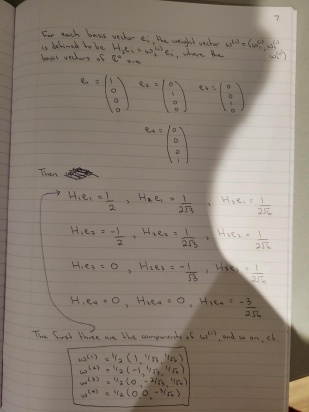 7
For each basis vector eᵢ, the weight vector w⁽ⁱ⁾ = (w₁⁽ⁱ⁾, w₂⁽ⁱ⁾, w₃⁽ⁱ⁾)
is defined to be Hⱼeᵢ = wⱼ⁽ⁱ⁾eᵢ, where the
basis vectors of are
e₁ = (1 0 0 0) e₂ = (0 1 0 0) e₃ = (0 0 1 0)
e₄ = (0 0 0 1)
Then
H₁e₁ = 1/2 , H₂e₁ = 1/2√3 , H₃e₁ = 1/2√6
H₁e₂ = -1/2 , H₂e₂ = 1/2√3 , H₃e₂ = 1/2√6
H₁e₃ = 0 , H₂e₃ = -1/√3 , H₃e₃ = 1/2√6
H₁e₄ = 0 , H₂e₄ = 0 , H₃e₄ = -3/2√6
The first three are the components of w⁽¹⁾, and so on,
w⁽¹⁾ = 1/2 (1, 1/√3, 1/√6)
w⁽²⁾ = 1/2 (-1, 1/√3, 1/√6)
w⁽³⁾ = 1/2 (0, -2/√3, 1/√6)
w⁽⁴⁾ = 1/2 (0, 0, -3/√6)